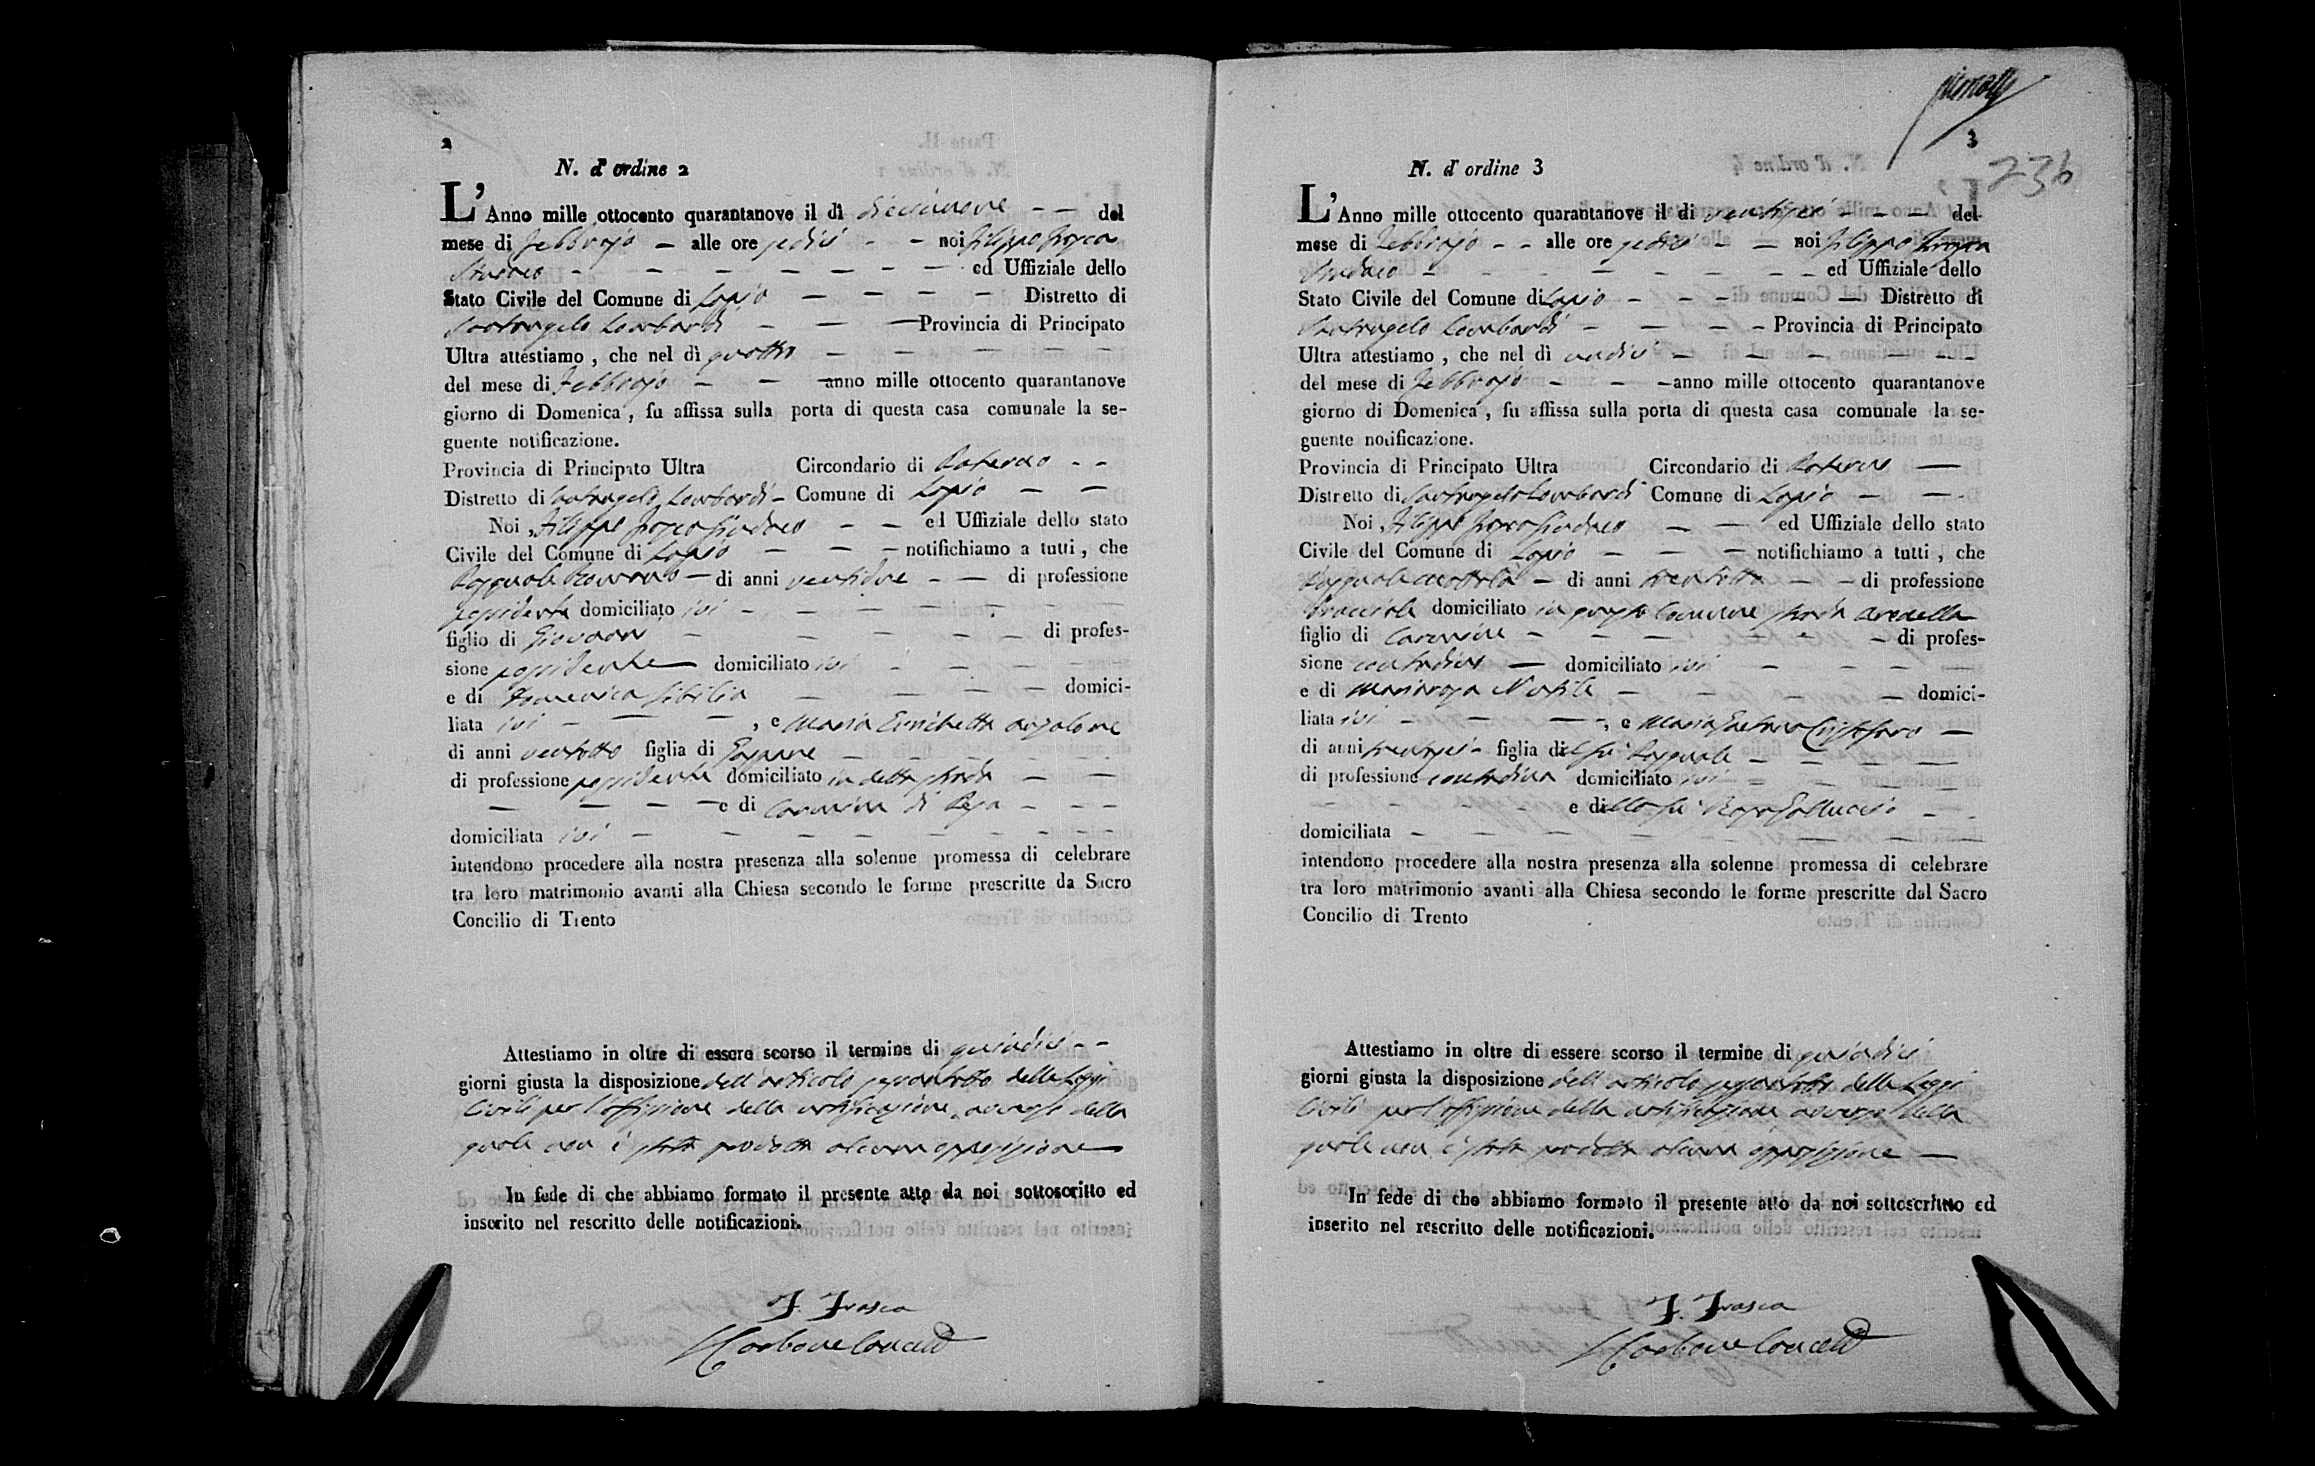 2
N. d' ordine 2
L' Anno mille ottocento quarantanove il dì diecinnove - - del
mese di Febbrajo - alle ore sedici - - noi Filippo Frasca
Sindaco - - - - - - - ed Uffiziale dello
Stato Civile del Comune di Lapio - - - - Distretto di
Santangelo Lombardi - - - Provincia di Principato
Ultra attestiamo , che nel dì quattro - - - - - -
del mese di Febbrajo - - - anno mille ottocento quarantanove
giorno di Domenica , fu affissa sulla porta di questa casa comunale la se-
guente notificazione.
Provincia di Principato Ultra Circondario di Paterno - -
Distretto di Santangelo Lombardi - Comune di Lapio - -
Noi , Filippo Frasca Sindaco - - ed Uffiziale dello stato
Civile del Comune di Lapio - - - notifichiamo a tutti , che
Pasquale Romano - di anni ventidue - - di professione
possidente domiciliato ivi - - - - - - -
figlio di Giovanni - - - - - di profes-
sione possidente domiciliato ivi - - - -
e di Domenica Sibilia - - - - domici-
liata ivi - - - , e Maria Enrichetta
di anni ventotto figlia di Gaspare - - - - -
di professione possidente domiciliato in detta strada - -
- - - - e di Carmina di Pesa - - -
domiciliata ivi - - - - - - - -
intendono procedere alla nostra presenza alla solenne promessa di celebrare
tra loro matrimonio avanti alla Chiesa secondo le forme prescritte da Sacro
Concilio di Trento
Attestiamo in oltre di essere scorso il termine di quindici - -
giorni giusta la disposizione dell'articolo sessantotto delle Leggi
Civili per l'affissione della notificazione, avverso della
quale non è stata prodotta alcuna opposizione
In fede di che abbiamo formato il presente atto da noi sottoscritto ed
inserito nel rescritto delle notificazioni.
F. Frasca
Carbone Cancell
3
236
N. d' ordine 3
L' Anno mille ottocento quarantanove il di ventisei - - - del
mese di Febbrajo - - alle ore sedici - - noi Filippo Frasca
Sindaco - - - - - - - ed Uffiziale dello
Stato Civile del Comune di Lapio - - - - - Distretto di
Santangelo Lombardi - - - - Provincia di Principato
Ultra attestiamo , che nel dì undici - - - - - -
del mese di Febbrajo - - - anno mille ottocento quarantanove
giorno di Domenica , fu affissa sulla porta di questa casa comunale la se-
guente notificazione.
Provincia di Principato Ultra Circondario di Paterno -
Distretto di Santangelo Lombardi Comune di Lapio - -
Noi , Filippo Frasca Sindaco - - ed Uffiziale dello stato
Civile del Comune di Lapio - - - notifichiamo a tutti , che
Pasquale - di anni trentotto - - di professione
bracciale domiciliato in questo Comune strada
figlio di Carmine - - - - - di profes-
sione contadino - domiciliato ivi - - - -
e di Mariarosa - - - - domici-
liata ivi - - - , e Maria Gaetana Cristofaro -
di anni trentasei - figlia del fu Pasquale - - -
di professione contadina domiciliato ivi - - - -
- - - - e della fu Rosa Gallucci - -
domiciliata - - - - - - - -
intendono procedere alla nostra presenza alla solenne promessa di celebrare
tra loro matrimonio avanti alla Chiesa secondo le forme prescritte dal Sacro
Concilio di Trento
Attestiamo in oltre di essere scorso il termine di quindici
giorni giusta la disposizione dell'articolo sessantotto delle Leggi
Civili per l'affissione della notificazione avverso della
quale non è stata prodotta alcuna opposizione -
In fede di che abbiamo formato il presente atto da noi sottoscritto ed
inserito nel rescritto delle notificazioni.
F. Frasca
Carbone Cancell